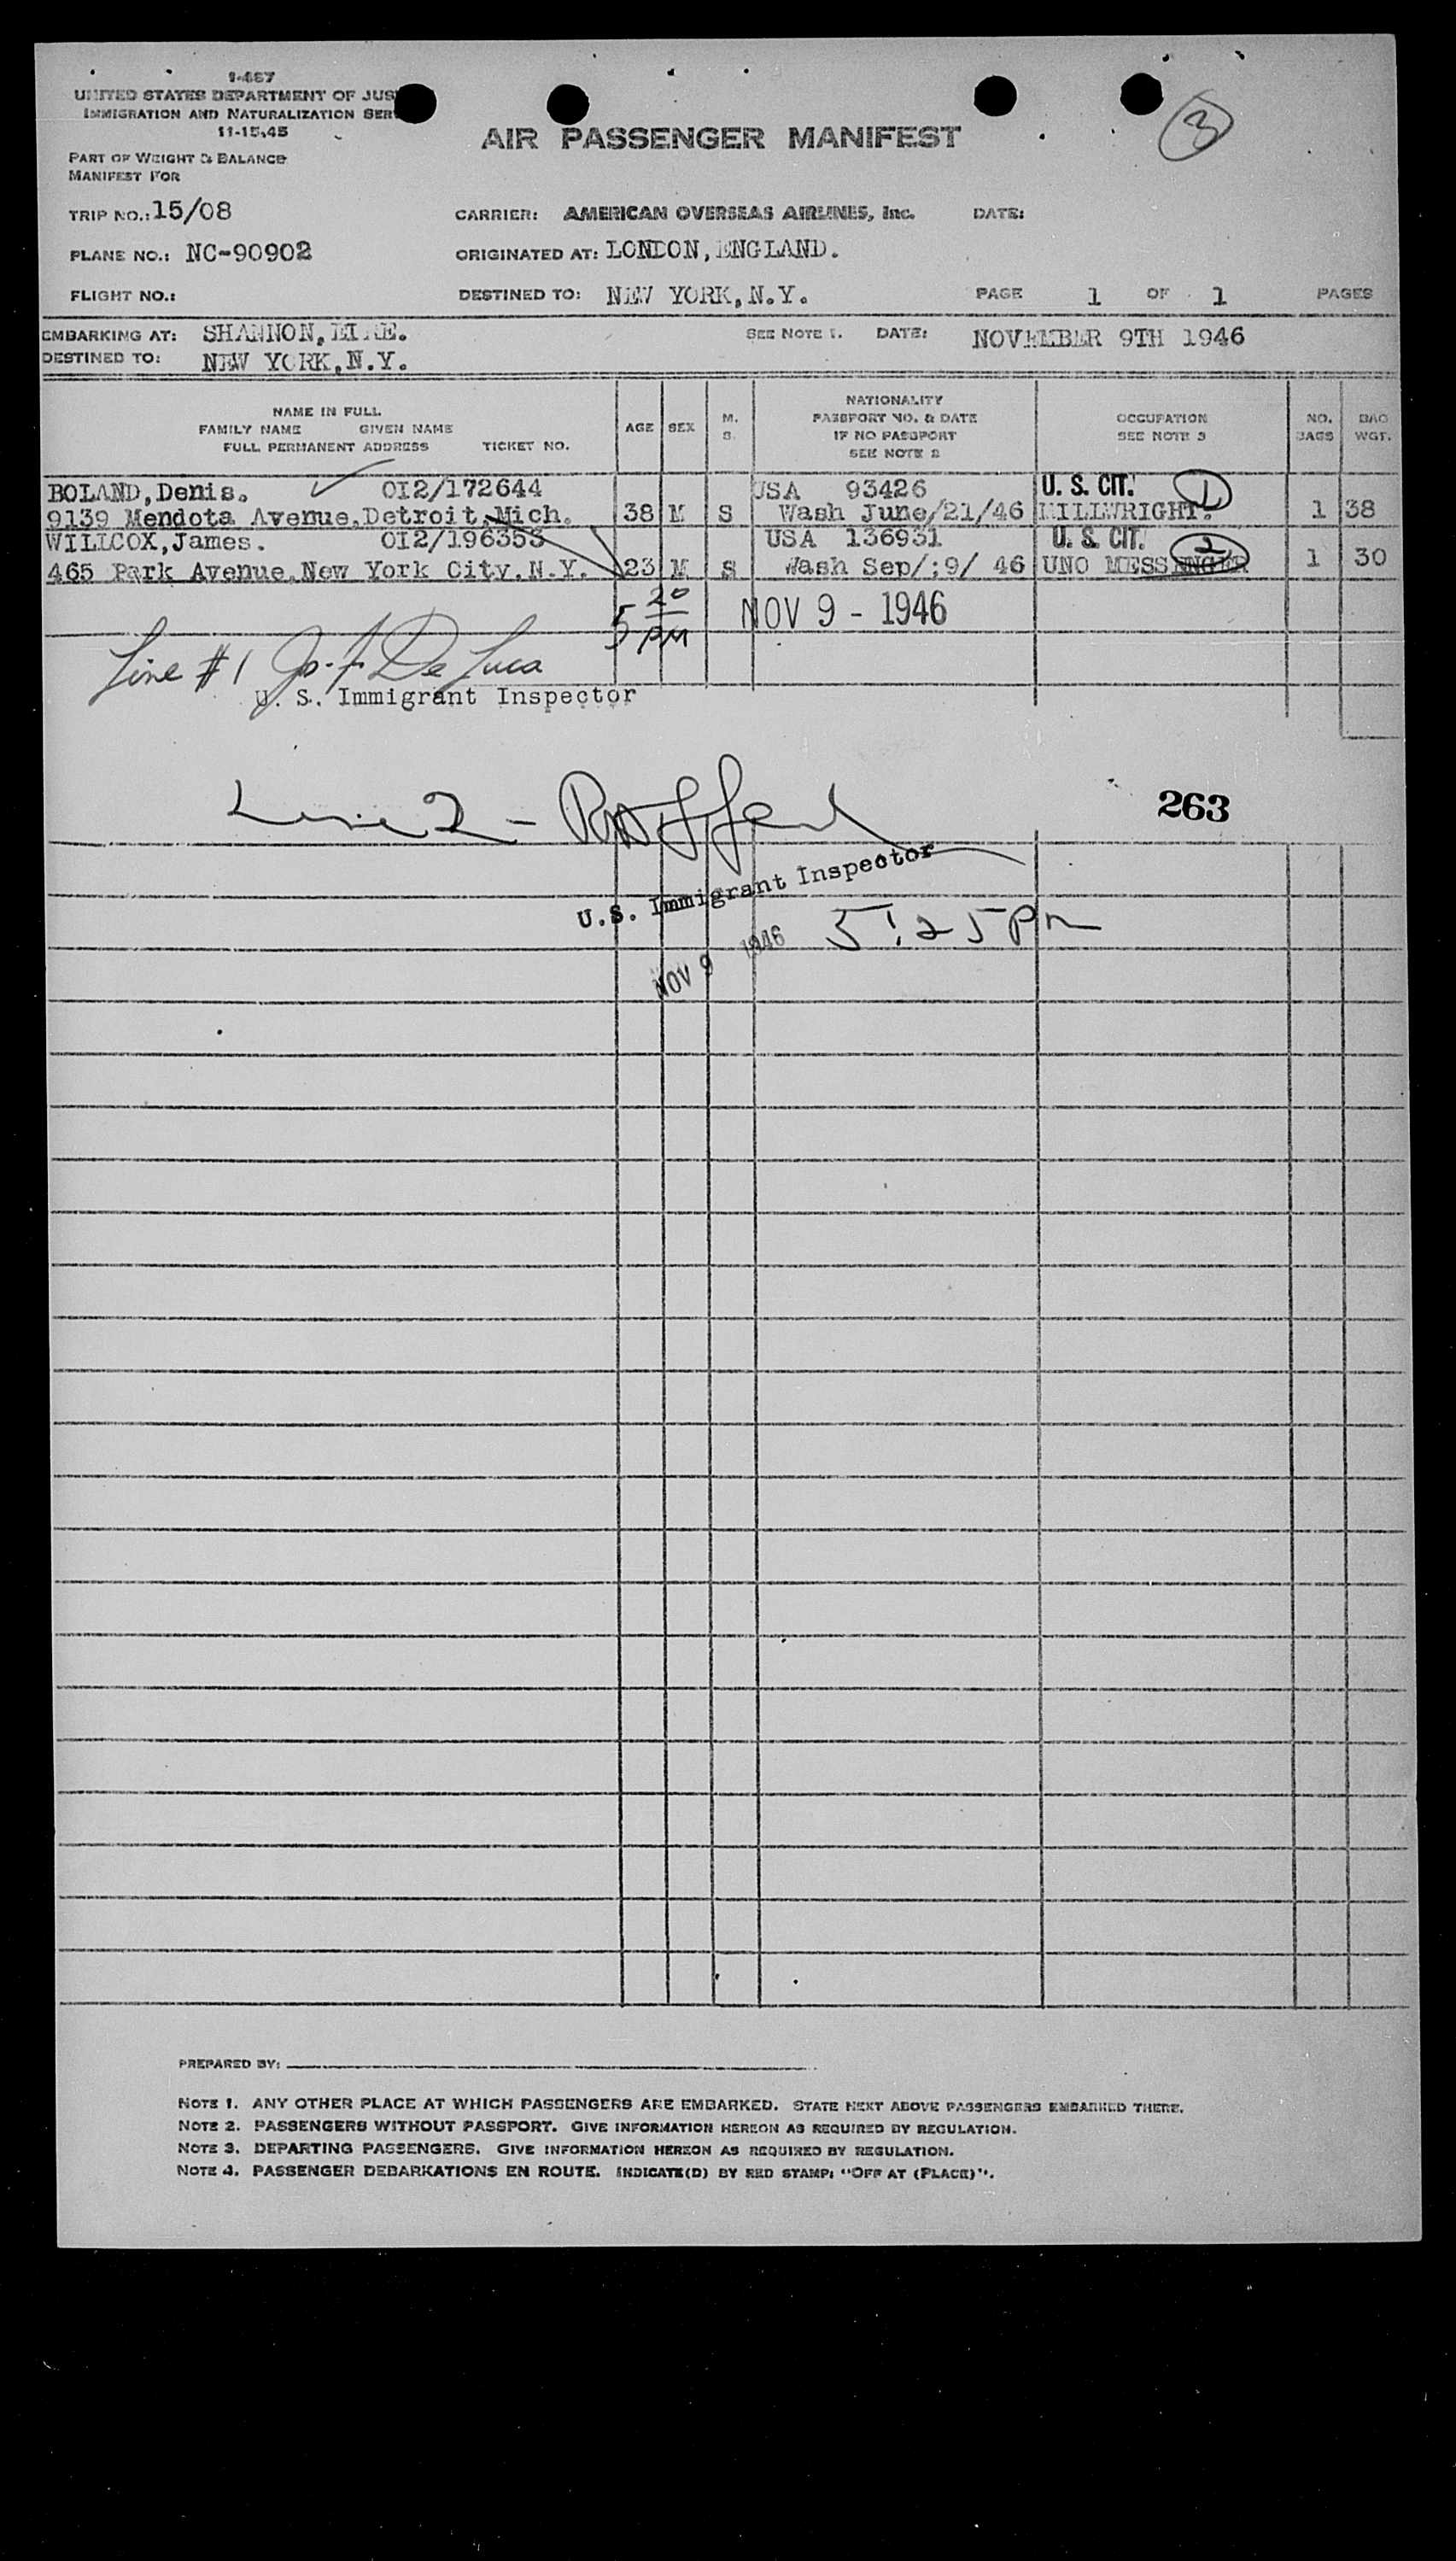 I-467
UNITED STATES DEPARTMENT OF JUS
IMMIGRATION AND NATURALIZATION SER
11-15-45
AIR PASSENGER MANIFEST
3
PART OF WEIGHT & BALANCE
MANIFEST FOR
TRIP NO.: 15/08 CARRIER: AMERICAN OVERSEAS AIRLINES, Inc. DATE:
PLANE NO.: NC-90902 ORIGINATED AT: LONDON, ENGLAND.
FLIGHT NO.: DESTINED TO: NEW YORK, N.Y. PAGE 1 OF 1 PAGES
EMBARKING AT: SHANNON, EIRE. SEE NOTE 1. DATE: NOVEMBER 9TH 1946
DESTINED TO: NEW YORK, N.Y.
NAME IN FULL
FAMILY NAME GIVEN NAME
FULL PERMANENT ADDRESS TICKET NO.
AGE SEX M. S.
NATIONALITY
PASSPORT NO. & DATE
IF NO PASSPORT
SEE NOTE 2
OCCUPATION
SEE NOTE 3
NO. BAGS
BAG WGT.
BOLAND, Denis. OI2/172644 USA 93426 U. S. CIT. 1
9139 Mendota Avenue, Detroit, Mich. 38 M S Wash June/21/46 MILLWRIGHT. 1 38
WILLCOX, James. OI2/196353 USA 136931 U. S. CIT. 2
465 Park Avenue, New York City. N.Y. 23 M S Wash Sep/;9/ 46 UNO MESSENGER 1 30
5 20 PM NOV 9 - 1946
Line #1 Jo. F. De Luca
U. S. Immigrant Inspector
263
Line 2 -
U.S. Immigrant Inspector
NOV 9 1946 5:25 PM
PREPARED BY:
NOTE 1. ANY OTHER PLACE AT WHICH PASSENGERS ARE EMBARKED. STATE NEXT ABOVE PASSENGERS EMBARKED THERE.
NOTE 2. PASSENGERS WITHOUT PASSPORT. GIVE INFORMATION HEREON AS REQUIRED BY REGULATION.
NOTE 3. DEPARTING PASSENGERS. GIVE INFORMATION HEREON AS REQUIRED BY REGULATION.
NOTE 4. PASSENGER DEBARKATIONS EN ROUTE. INDICATE(D) BY RED STAMP: "OFF AT (PLACE)".